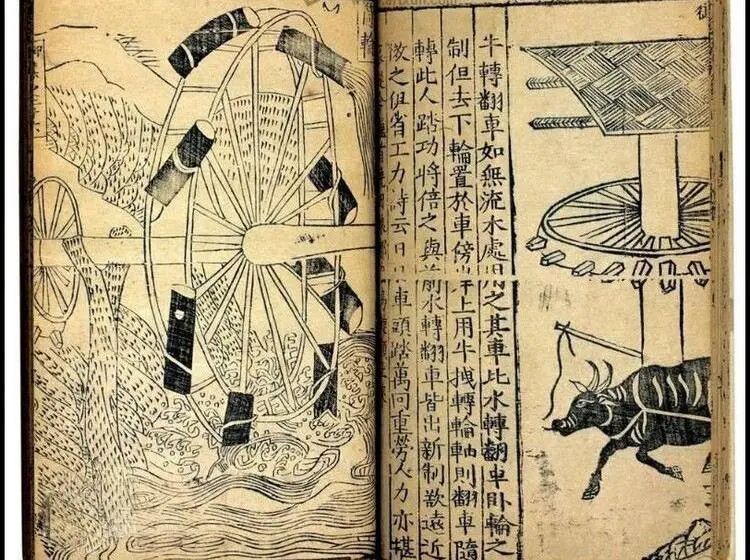 牛轉翻車如無流水處用之其車比水轉翻車卧輪之
制但去下輪置於車傍岸上用牛拽轉輪軸則翻車隨
轉此人踏功將倍之與前水轉翻車皆出新制欲遠近
傚之俱省工力詩云日日車頭踏萬回重勞人力亦堪
輪